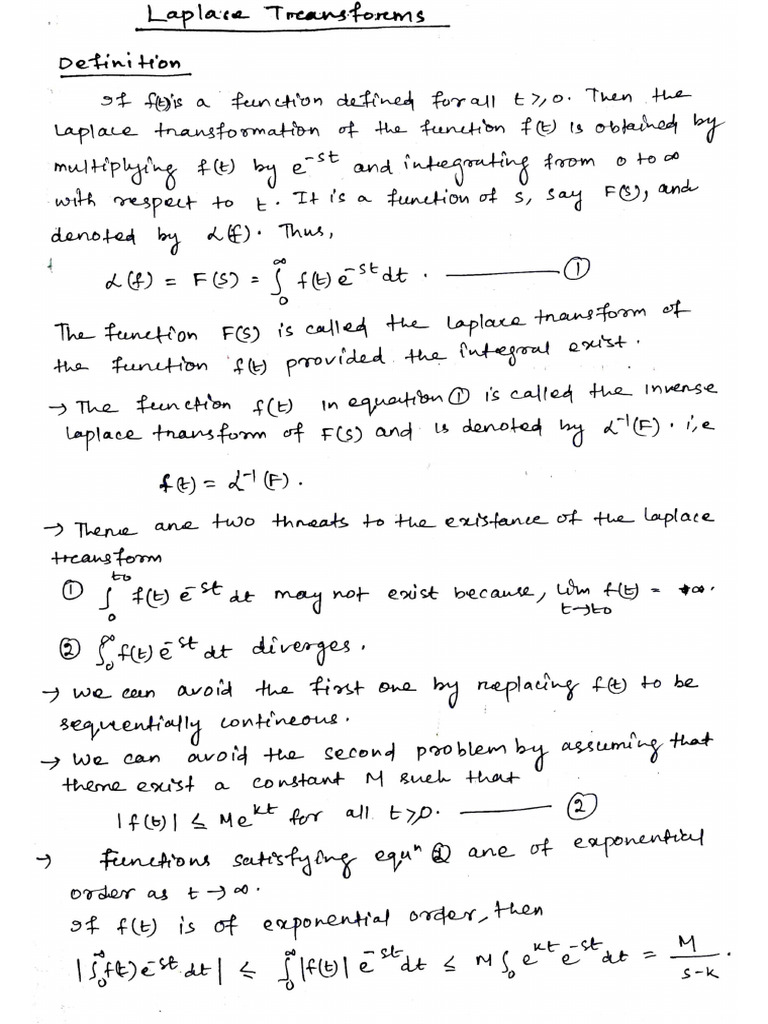 Laplace Transforms
Definition
If f(t) is a function defined for all t ≥ 0. Then the
Laplace transformation of the function f(t) is obtained by
multiplying f(t) by e^{-st} and integrating from 0 to ∞
with respect to t. It is a function of s, say F(s), and
denoted by ℒ(f). Thus,
ℒ(f) = F(s) = ∫_0^∞ f(t) e^{-st} dt. ——— ①
The function F(s) is called the Laplace transform of
the function f(t) provided the integral exist.
→ The function f(t) in equation ① is called the inverse
Laplace transform of F(s) and is denoted by ℒ^{-1}(F). i,e
f(t) = ℒ^{-1}(F).
→ There are two threats to the existance of the Laplace
transform
① ∫_0^{t0} f(t) e^{-st} dt may not exist because, lim_{t→t0} f(t) = +∞.
② ∫_0^∞ f(t) e^{-st} dt diverges.
→ We can avoid the first one by replacing f(t) to be
sequentially contineous.
→ We can avoid the second problem by assuming that
there exist a constant M such that
|f(t)| ≤ Me^{kt} for all t>0. ——— ②
→ Functions satisfying equⁿ ② are of exponential
order as t → ∞.
If f(t) is of exponential order, then
|∫_0^∞ f(t) e^{-st} dt| ≤ ∫_0^∞ |f(t)| e^{-st} dt ≤ M ∫_0^∞ e^{kt} e^{-st} dt = M/(s-k).